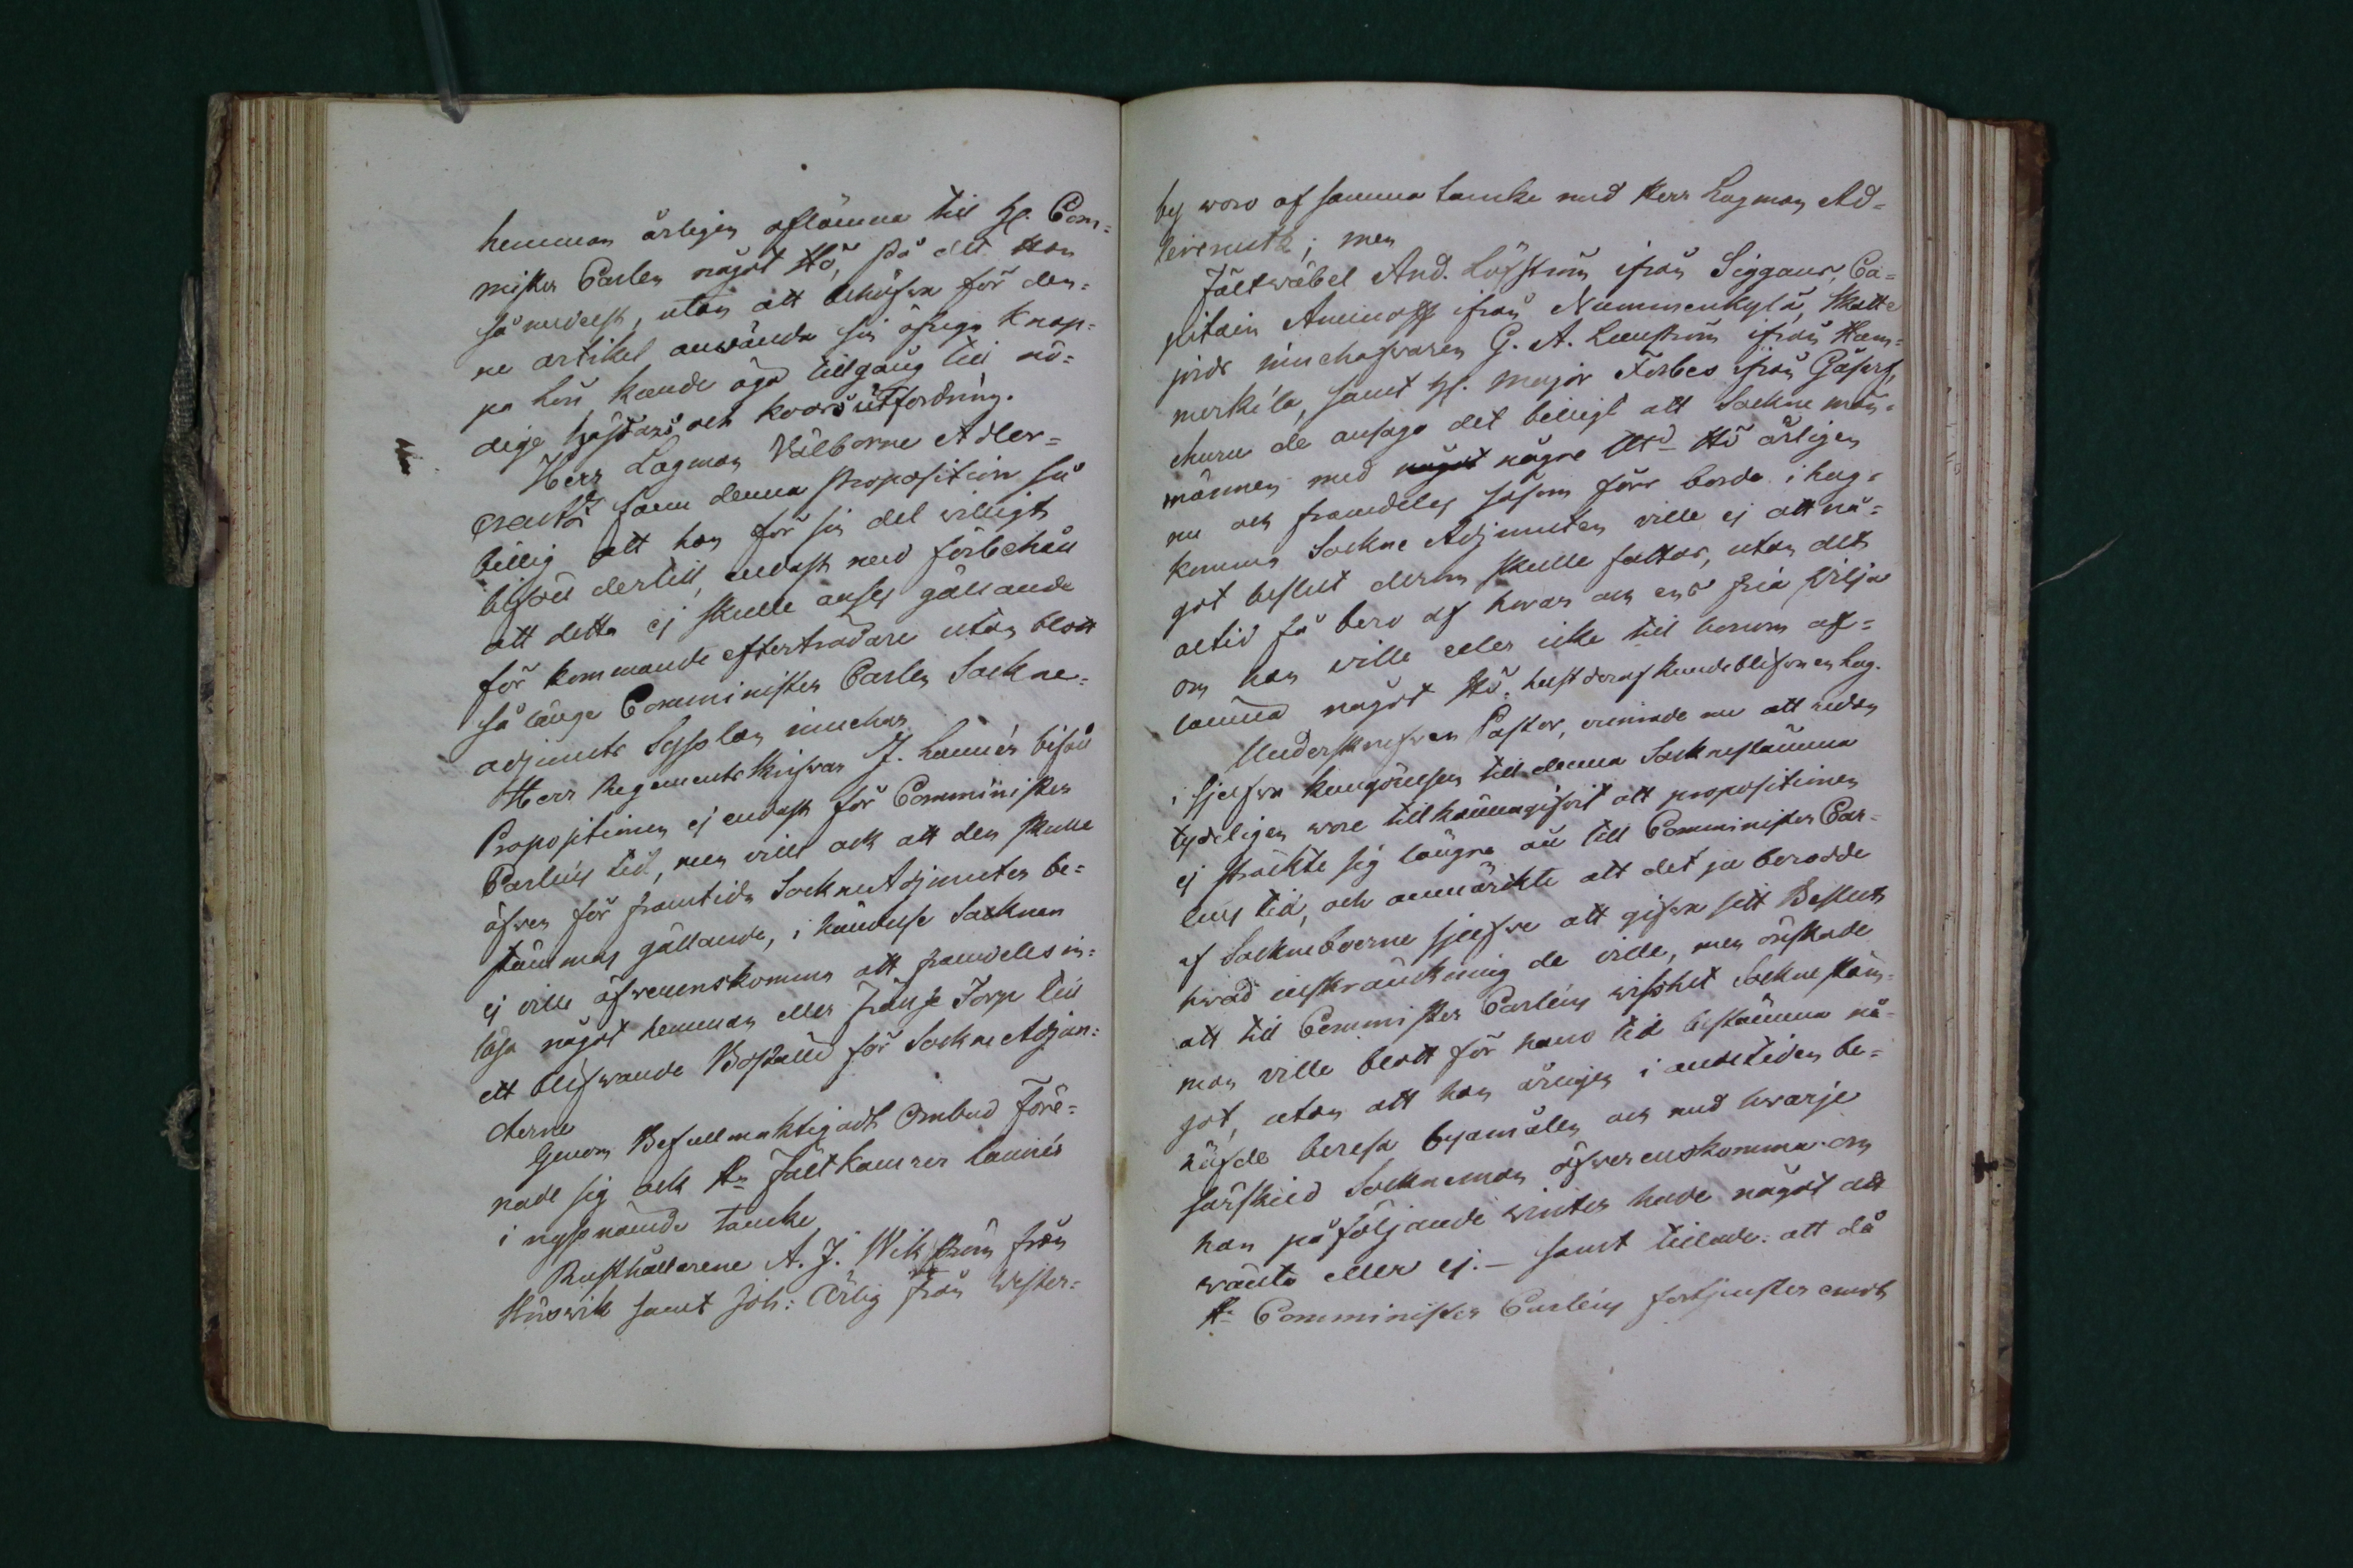 hemman årligen aflämna till H. Com=
mister Carlen något Hö, på det Han
så medelst, utan att behöfva för den=
ne artikel använda sin öfriga knap=
pa lön kunde äga tillgång till nö=
dige hästars och koors utfordring.
Herr Lagman Välborne Adler=
creutz fann denna proposition så
billig att han för sin del villigt
biföll dertill, endast med förbehåll
att detta ej skulle anses gällande
för kommande efterträdare utan blott
så länge Comminister Carlen Sockne=
adjuncts Sysslan innehar.
Herr Regementsskrifvar J. Lannér biföll
Propositionen ej endast för Comminister
Carléns tid, men ville ock att den skulle
äfven för framtida SockneAdjuncter be=
stämmas gällande, i händelse Socknen
ej ville öfverenskomma att framdeles in=
lösa något hemman eller frälse Torp till
ett blifvande Boställe för Sockne Adjunc=
terne
Genom Befullmäktigadt Ombud före=
nade sig ock Hr Fältkamrer Lannér
i nyssnämde tancke
Rusthållarene A. J. Wikström från
Hirswik samt Joh: Ärlig från Wester=
by woro af samma tancke med Herr Lagman Ad=
lercreutz; men
Fältwäbel And. Löfström ifrån Siggans, Ca=
pitain Aminoff ifrån Nummenkylä, Skatte
jords innehafvaren G. A. Lennström ifrån Ham=
merkila, samt H. Major Forbes ifrån Gåsarf,
ehuru de ansågo det billigt att Sockne män=
männen med någre Hö årligen
nu och framdeles såsom förr borde i hug=
komma Sockne Adjuncten ville ej att nå=
got beslut derom skulle fattas, utan det
altid få bero af hvar och ens fria vilja
om han ville eller icke till honom af=
lämna något Hö. helst deraf kunde blifva en lag.
Underskrefven Pastor, erinrade nu att redan
i sjelfva kungörelsen till denna Socknestämma
tydeligen wore tillkännagifvit att propositionen
ej sträckte sig längre än till Comminister Car=
lens tid, och anmärckte att det ju berodde
af Sockneboerne sjelfve att gifva sitt Beslut
hvad inskränckning de ville, men önskade
att till Comminister Carléns wisshet Sockne stäm=
man ville blott för hans tid bestämma nå=
got, utan att han årligen i andetiden be=
höfde beresa byamålen och med hwarje
särskild Sockneman öfwerenskomma om
han påföljande winter hade något att
wänta eller ej. — samt tillade: att då
Hr Comminister Carléns förtjenster emot